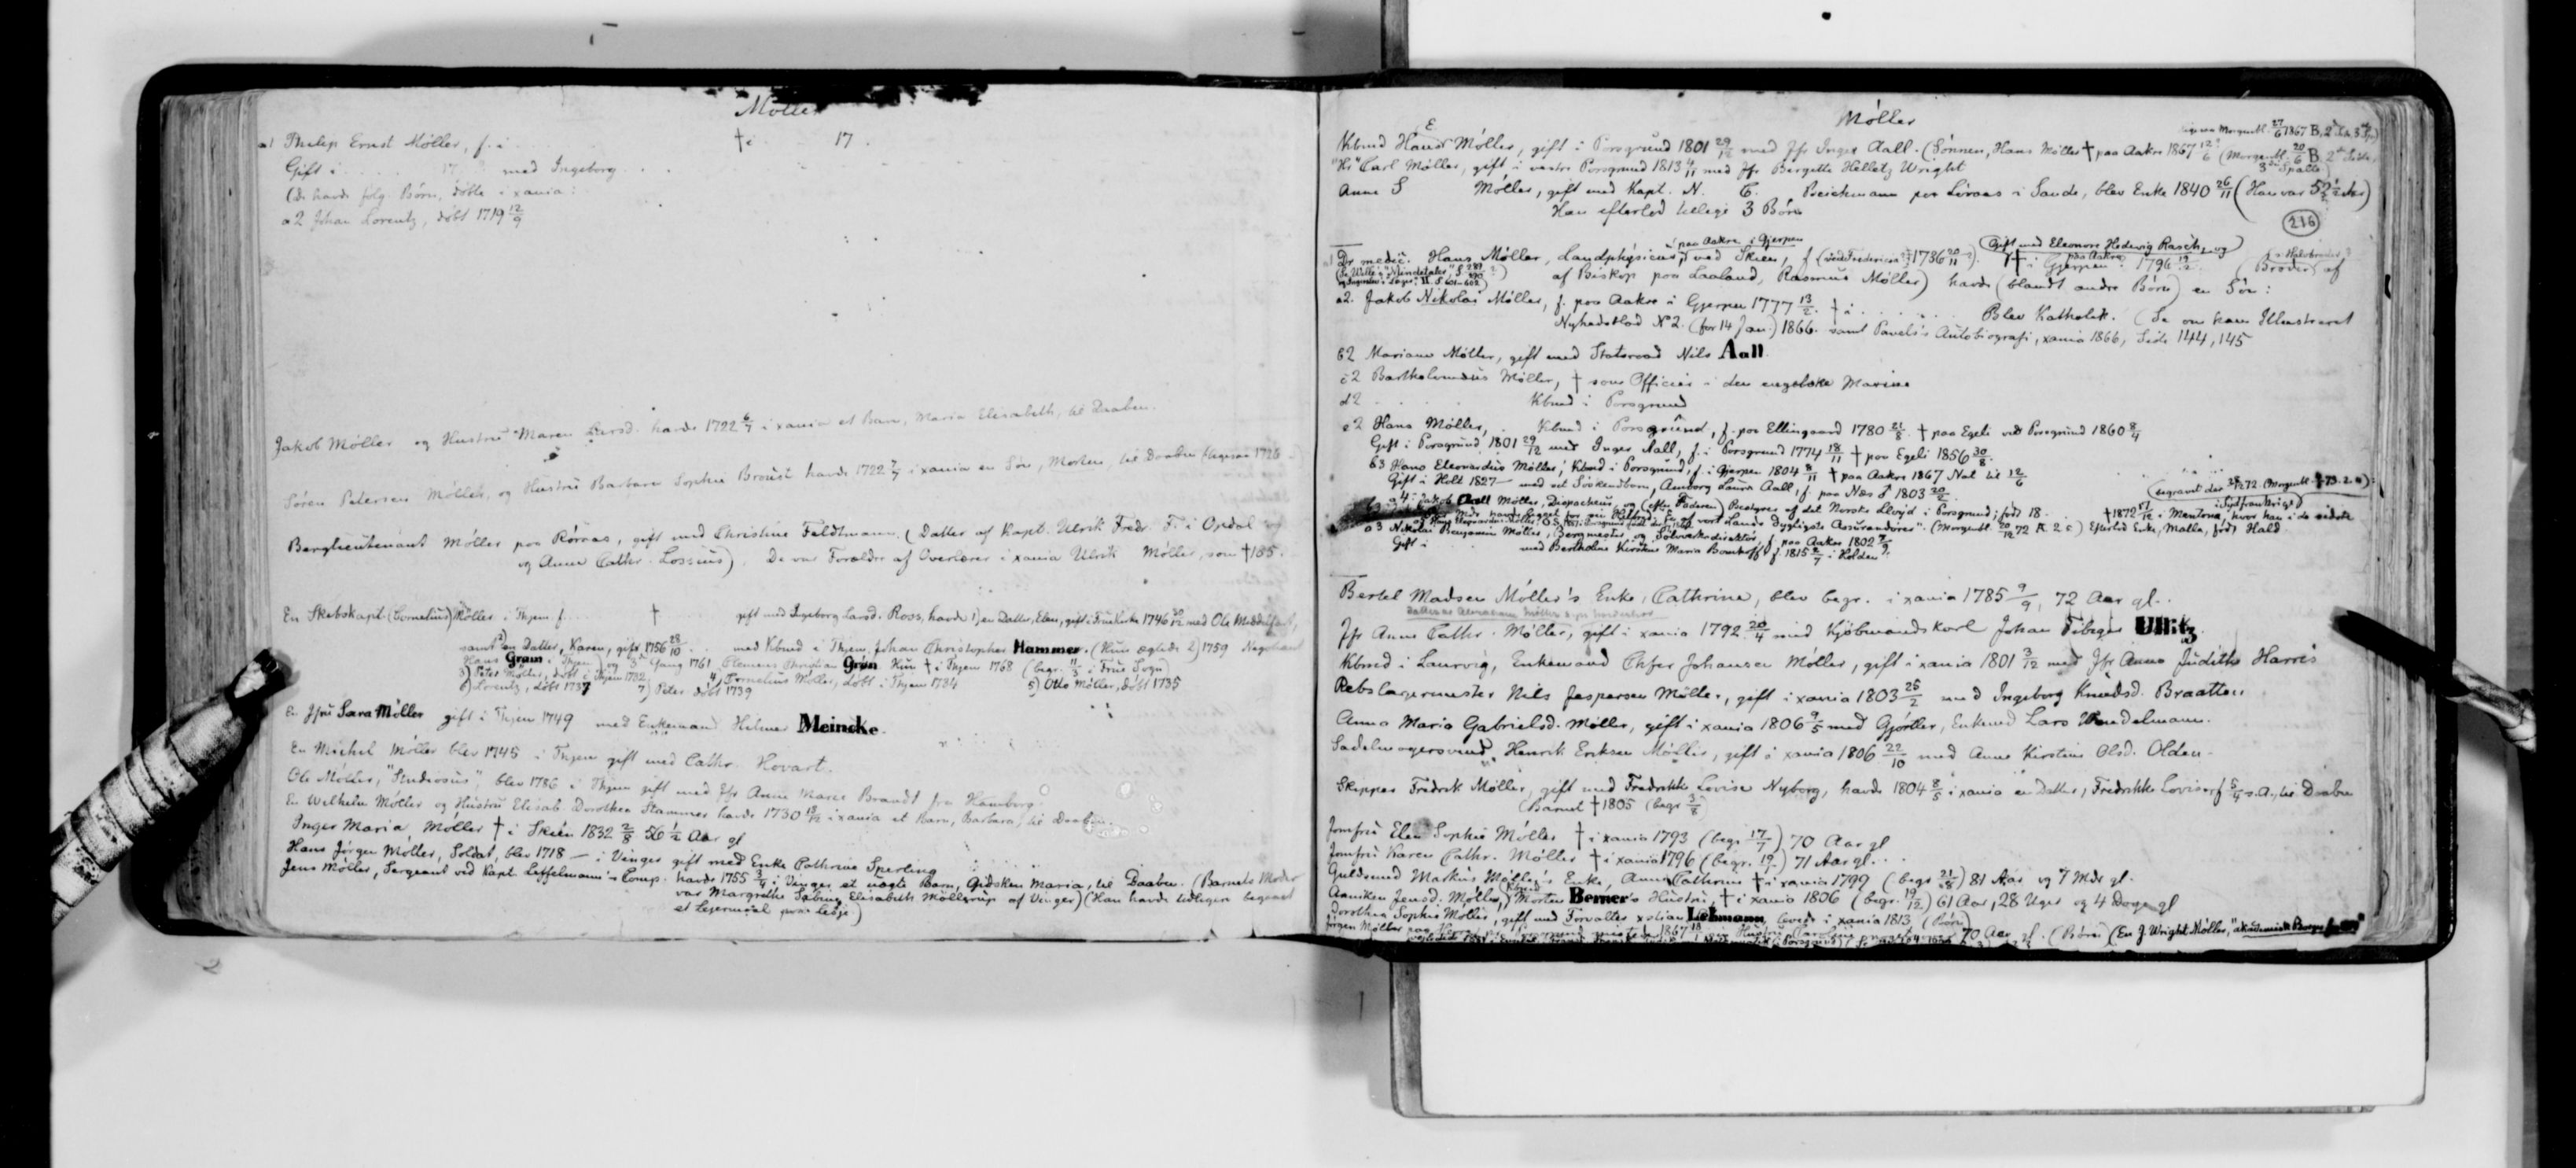 Møller
a1 Philip Ernst Møller, f. i † i 17 .
Gift i 17 med Ingeborg
(De havde følg. Børn, døbte i xania:
a2 Johan Lorentz, døbt 1719 12/9
Jakob Møller og Hustru Maren Larsd. havde 1722 6/7 i xania et Barn, Maria Elisabeth, til Daaben.
Søren Petersen Møller, og Hustru Barbara Sophie Broust havde 1722 7/7 i xania en Søn, Morten, til Daaben
Berglieutenant Møller paa Røraas, gift med Christine Feldtmann (Datter af Kapt. Ulrik Fredr. F. i Opdal og
og Anne Cathr. Lossius). De var Forældre af Overlærer i xania Ulrik Møller, som † 185.
En Skibskapt. (Cornelius) Møller i Thjem f. † gift med Ingeborg Larsd. Roos, havde 1) en Datter, Elen, gift i Fruekirke 1746 med Ole
samt 2) en Datter, Karen, gift 1756 28/10 med Kbmd i Thjem Johan Christopher Hammer. (Hun ægtede 2) 1759
Hans Gram i Thjem) og 3die Gang 1761 Clemens Christian Grøn Hun † i Thjem 1768 (begr. 11/3 i Frue Sogn)
3) Peter Møller, døbt i Thjem 1732 4) Cornelius Møller, døbt i Thjem 1734 5) Otto Møller, døbt 1735
6) Lorentz, døbt 1737 7) Peter døbt 1739
En Jfru Sara Møller gift i Thjem 1749 med Enkemand Hilmer Meincke.
En Michel Møller blev 1745 i Thjem gift med Cathr. Hovart.
Ole Møller, "Studiosus", blev 1786 i Thjem gift med Jfr Anne Marie Brandt fra Hamborg.
En Wilhelm Møller og Hustru Elisab. Dorothea Stammer havde 1730 18/12 i xania et Barn, Barbara, til Daaben.
Inger Maria Møller † i Skien 1832 2/8 56 1/2 Aar gl
Hans Jörgen Møller, Soldat, blev 1718 — i Vinger gift med Enke Cathrine Sperling
Jens Møller, Sergeant ved Kapt. Leffelmann's Comp. havde 1755 3/4 i Vinger et uægte Barn, Gidsken Maria, til Daaben. (Barnets Moder
var Margrethe Sabina Elisabeth Møllerup af Vinger) (Han havde tidligere begaaet
et Leiermaal paa Lesje)
Møller
Kbmd Hans E Møller, gift i Porsgrund 1801 29/12 med Jfr Inger Aall. (Sønnen, Hans Møller † paa Aakre 1867 12/6 (Morgenbl. 20/6 B, 2den Side, 3die Spalte)
"Hr" Carl Møller, gift i vestre Porsgrund 1813 4/11 med Jfr Bergitte Helletz Wright
Anne S Møller, gift med Kapt. N. C. Beichmann paa Liraas i Sande, blev Enke 1840 26/11 (Han var 52 1/2 Aar)
Han efterlod tillige 3 Børn
216
Dr medic. Hans Møller, Landphysicus ved Skien, paa Aakre i Gjerpen, f. (ved Fredericia 1736 20/11). Gift med Eleonora Hedewig Rasch, og † i Gjerpen paa Aakre 1796 19/2. (Broder af
af Biskop paa Laaland, Rasmus Møller) havde (blandt andre Børn) en Søn:
a2. Jakob Nikolai Møller, f. paa Aakre i Gjerpen 1777 13/2. † i Blev Katholik. (Se om ham Illustreret
Nyhedsblad No 2. (for 14 Jan.) 1866. samt Pavels's Autobiografi, xania 1866, Side 144, 145
b2 Mariane Møller, gift med Statsraad Nils Aall.
c2 Bartholomæus Møller, † som Officier i den engelske Marine
d2 Kbmd i Porsgrund
e2 Hans Møller, Kbmd i Porsgrund, f. paa Ellingaard 1780 21/8. † paa Egeli ved Porsgrund 1860 8/4
Gift i Porsgrund 1801 29/12 med Inger Aall, f. i Porsgrund 1774 18/11 † paa Egeli 1856 30/8.
b3 Hans Eleonardus Møller, Kbmd i Porsgrund, f. i Gjerpen 1804 8/11 † paa Aakre 1867 Nat til 12/6
Gift i Holt 1827 — med sit Søskendbarn, Amborg Laura Aall, f. paa Næs 1803 20/2.
a4 Jakob Aall Møller, Dispacheur, og (efter Faderen) Bestyrer af det Norske Lloyd i Porsgrund; født 18 † 1872 i Mentone, hvor han i de sidste
vort Lands dygtigste Assurandører". (Morgenbl. 20/12 72 A. 2 c) Efterlod Enke, Malla, født Hald
a3 Nikolai Benjamin Møller, Bergmester og Sølvverksdirektør, f. paa Aakre 1802
Gift i med Bertholine Kirstine Maria Bomhoff f. 1815 2/7 i Holden
Bertel Madsen Møller's Enke, Cathrine, blev begr. i xania 1785 9/9, 72 Aar gl.
Jfr Anne Cathr. Møller, gift i xania 1792 20/4 med Kjöbmandskarl Johan Fibiger Ullitz.
Kbmd i Laurvig, Enkemand Chfer Johansen Møller, gift i xania 1801 3/12 med Jfr Anna Judithe Harris
Rebslagermester Nils Jespersen Møller, gift i xania 1803 25/2 med Ingeborg Knudsd. Braatten
Anna Maria Gabrielsd. Møller, gift i xania 1806 9/5 med Gjørtler, Enkemd Lars Wendelmann.
Sadelmagersvend Henrik Eriksen Møller, gift i xania 1806 22/10 med Anne Kirstine Olsd. Olden.
Skipper Fredrik Møller, gift med Fredrikke Lovise Nyborg, havde 1804 8/5 i xania en Datter, Fredrikke Lovise, f 5/4 s.A., til Daaben
(Barnet † 1805 (begr. 3/8)
Jomfru Elen Sophie Møller † i xania 1793 (begr. 17/7) 70 Aar gl
Jomfru Karen Cathr. Møller † i xania 1796 (begr. 19/) 71 Aar gl.
Guldsmed Markus Møller's Enke, Anne Cathrine † i xania 1799 (begr. 21/8) 81 Aar og 7 Mdr gl.
Anniken Jensd. Møller, (Kbmd) Morten Berner's Hustru, † i xania 1806 (begr. 19/12) 61 Aar, 28 Uger og 4 Dage gl
Dorothea Sophie Møller, gift med Forvalter xstian Lehmann, levede i xania 1813 (Børn)
Jörgen Møller paa 1867 Hustru 70 Aar gl. (Børn) (En J. Wright Møller, "akademisk Borger